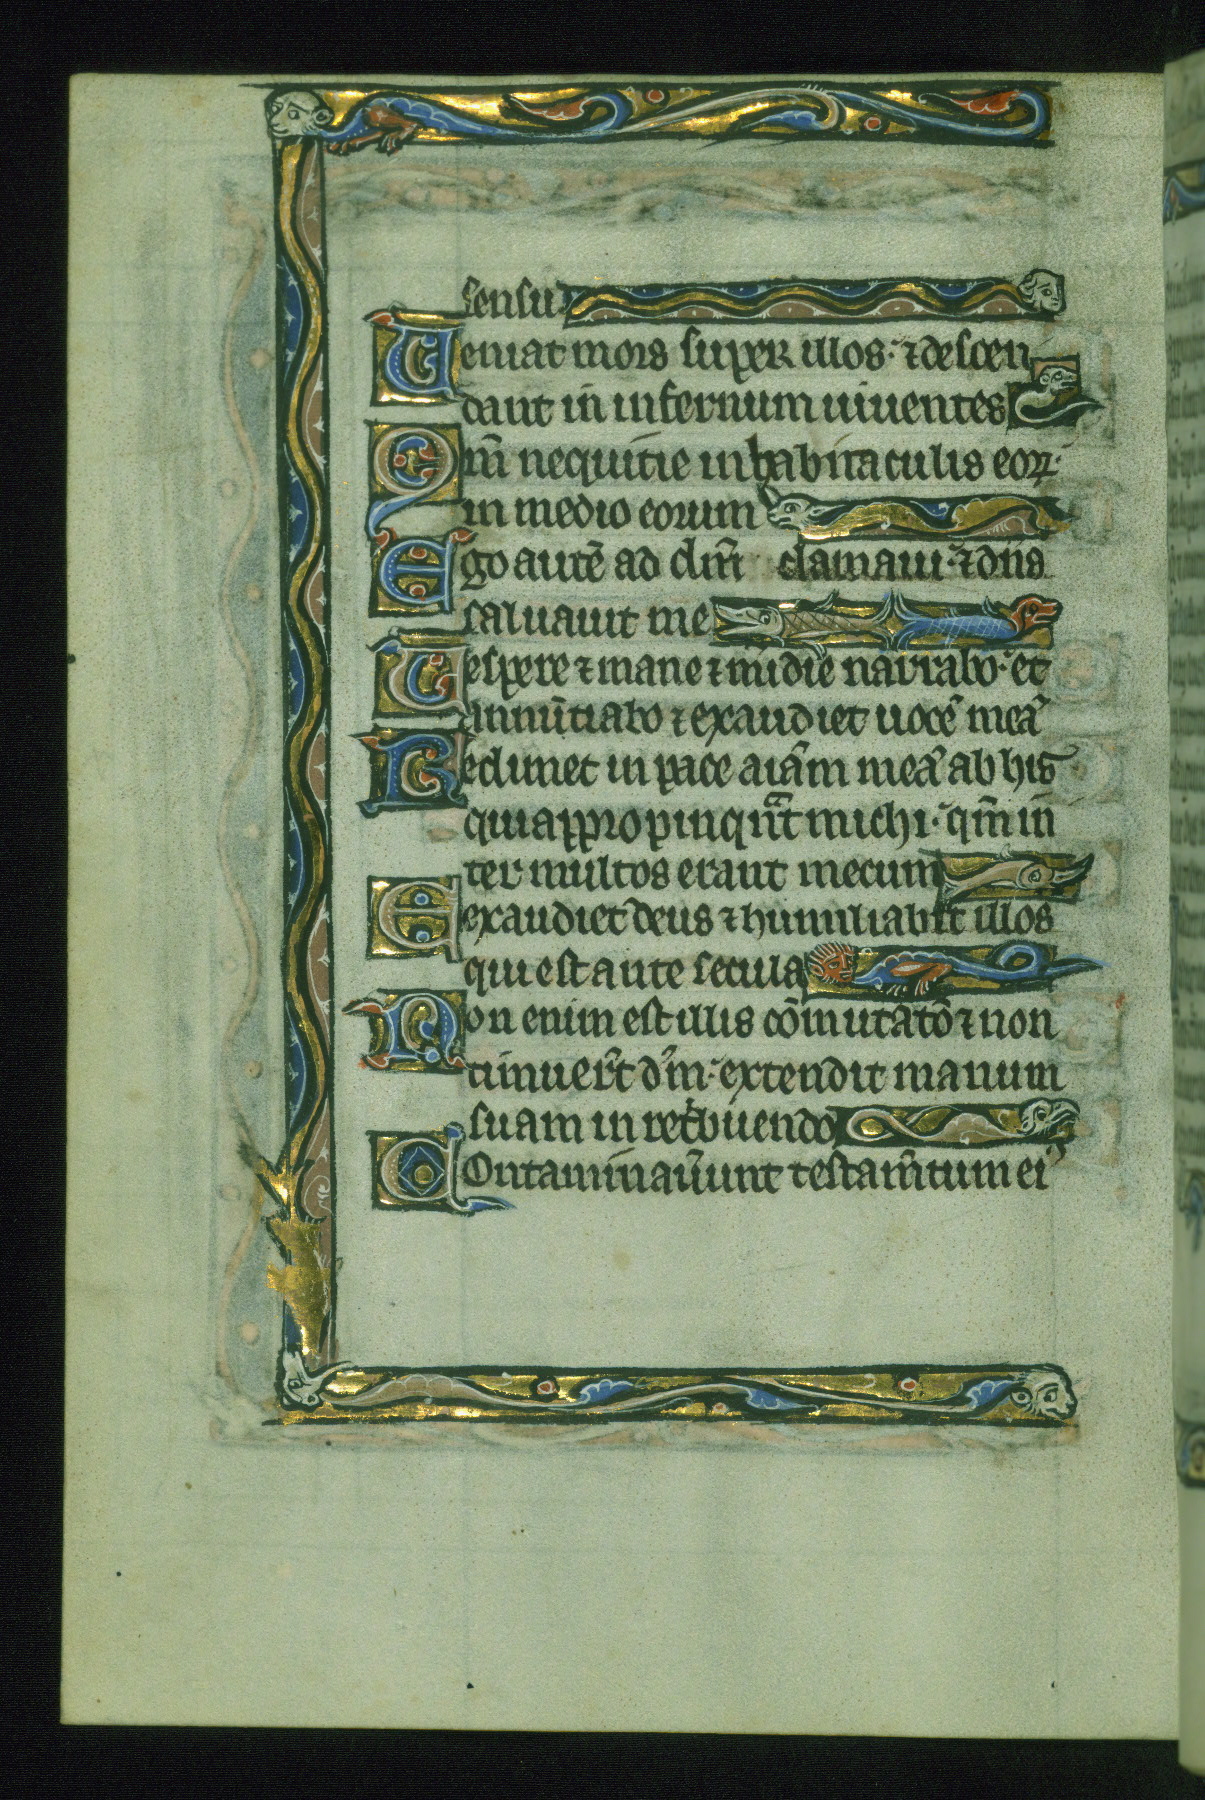 sensu
Ueniat mors super illos· ⁊ descen
dant in infernum uiuentes
Qm̄ nequitie in habitaculis eoꝝ·
in medio eorum
Ego autē ad dm̄ clamaui· ⁊ dn̄s
saluauit me
Uespere ⁊ mane ⁊ midie narrabo· et
annūtiabo ⁊ exaudiet uocē meā
Redimet in pace aīam meā ab his
qui appropinqn̄t michi· qm̄ in
ter multos erant mecum
Exaudiet deus ⁊ humiliabit illos
qui est ante secula
Non enim est illis cōmutatō ⁊ non
timuer̄t dm̄· extendit manum
suam in ret͛buendo
Contaminauer̄unt testam̄tum eiꝰ